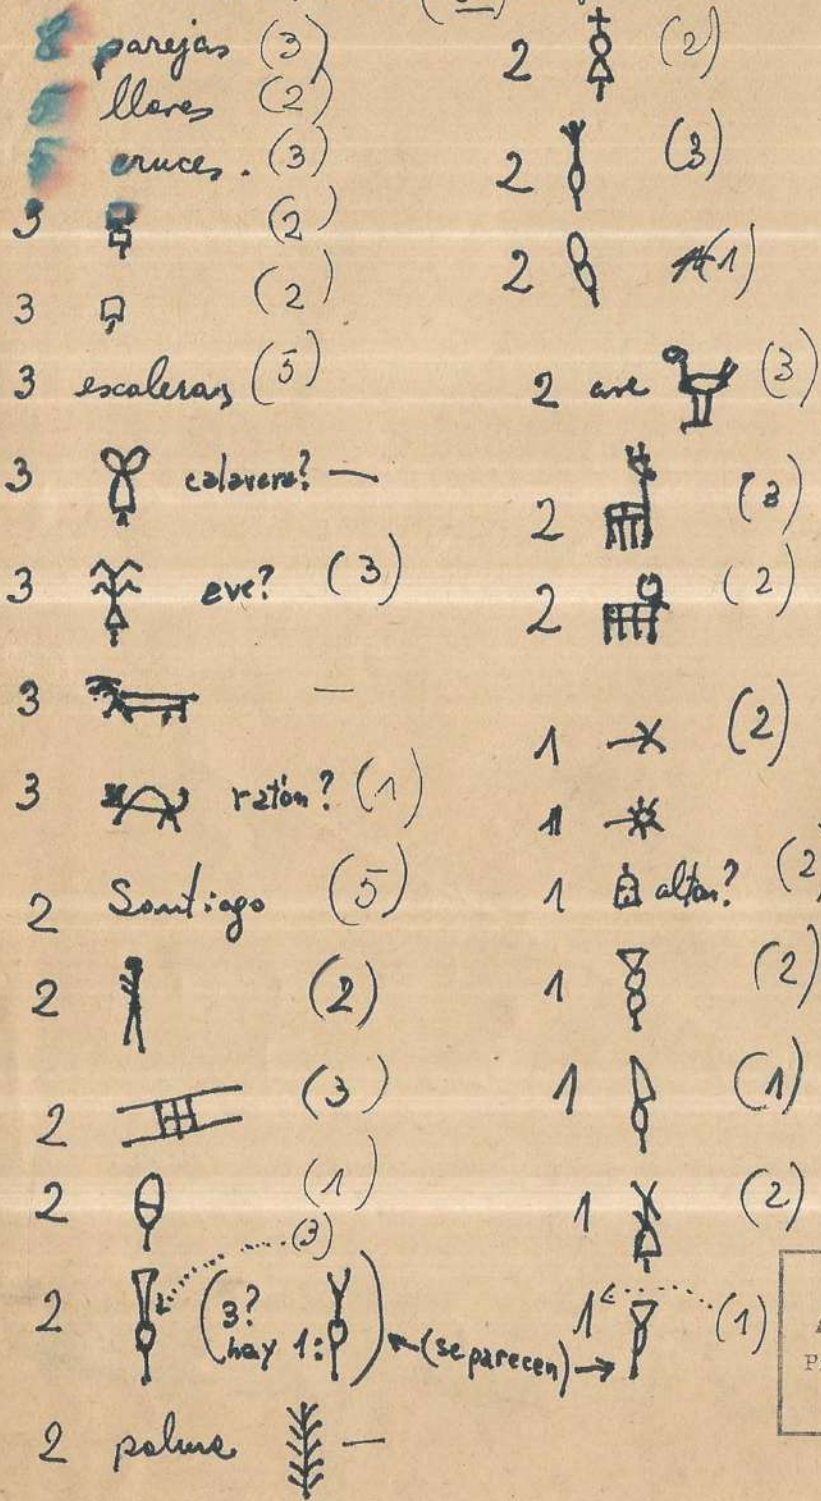 parejas (3)
llaves (2)
cruces. (3)
3 (2)
3 (2)
3 escaleras (5)
3 calavera? —
3 ave? (3)
3 —
3 ratón? (1)
2 Santiago (5)
2 (2)
2 (3)
2 (1)
2 (3) (3? hay 1:) (se parecen)
2 palma —
2 (2)
2 (3)
2 (1)
2 ave (3)
2 (3)
2 (2)
1 (2)
1
1 altar? (2)
1 (2)
1 (1)
1 (2)
1 (1)